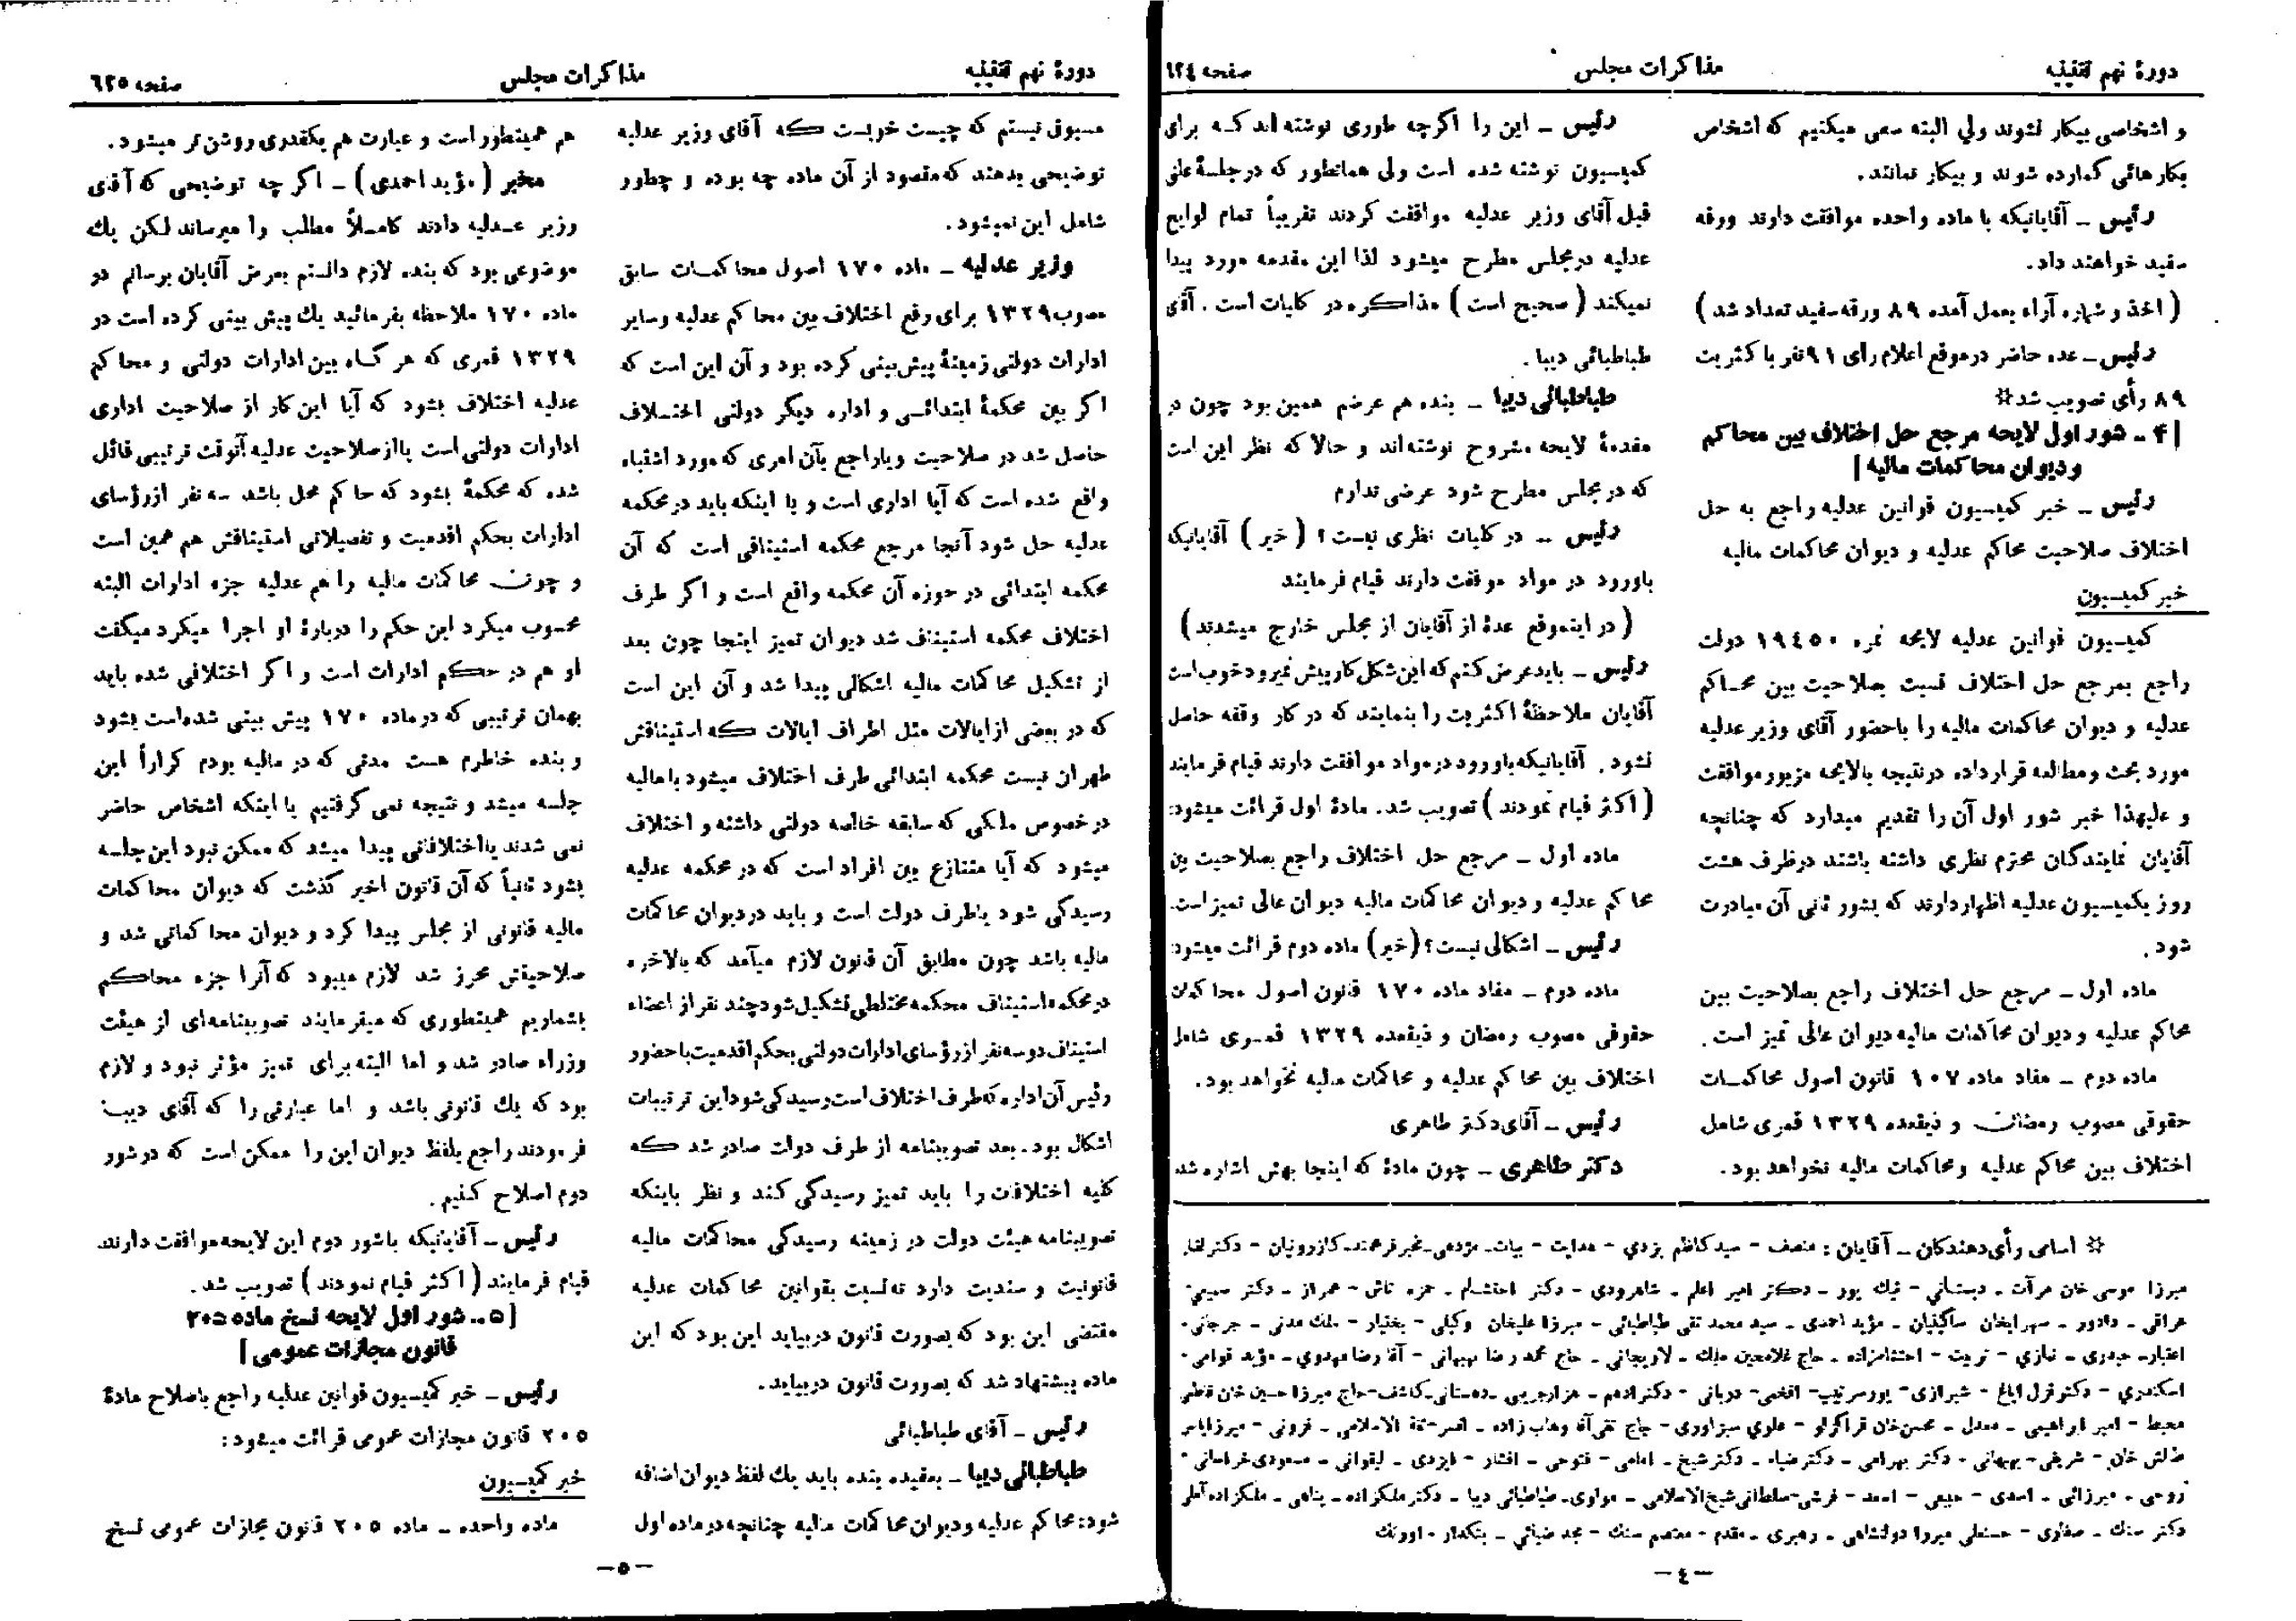 دورهٔ نهم تقنینیه
مذاکرات مجلس
صفحه ٦٢٤
و اشخاصی بیکار نشوند ولی البته سعی میکنیم که اشخاص
بکارهائی گمارده شوند و بیکار نمانند.
رئیس ـ آقایانیکه با ماده واحده موافقت دارند ورقه
سفید خواهند داد.
(اخذ و شماره آراء بعمل آمده ۸۹ ورقه سفید تعداد شد)
رئیس ـ عده حاضر در موقع اعلام رأی ۹۱ نفر با کثریت
۸۹ رأی تصویب شد※
[۴ ـ شور اول لایحه مرجع حل اختلاف بین محاکم
و دیوان محاکمات مالیه]
رئیس ـ خبر کمیسیون قوانین عدلیه راجع به حل
اختلاف صلاحیت محاکم عدلیه و دیوان محاکمات مالیه
خبر کمیسیون
کمیسیون قوانین عدلیه لایحه نمره ۱۹٤٥۰ دولت
راجع بمرجع حل اختلاف نسبت بصلاحیت بین محاکم
عدلیه و دیوان محاکمات مالیه را باحضور آقای وزیر عدلیه
مورد بحث و مطالعه قرارداده درنتیجه بالایحه مزبور موافقت
و علیهذا خبر شور اول آن را تقدیم میدارد که چنانچه
آقایان نمایندگان محترم نظری داشته باشند درظرف هشت
روز بکمیسیون عدلیه اظهاردارند که بشور ثانی آن مبادرت
شود.
ماده اول ـ مرجع حل اختلاف راجع بصلاحیت بین
محاکم عدلیه و دیوان محاکمات مالیه دیوان عالی تمیز است.
ماده دوم ـ مفاد ماده ۱۰۷ قانون اصول محاکمات
حقوقی مصوب رمضان و ذیقعده ۱۳۲۹ قمری شامل
اختلاف بین محاکم عدلیه و محاکمات مالیه نخواهد بود.
رئیس ـ این را اگرچه طوری نوشته اند که برای
کمیسیون نوشته شده است ولی همانطور که در جلسهٔ علنی
قبل آقای وزیر عدلیه موافقت کردند تقریباً تمام لوایح
عدلیه در مجلس مطرح میشود لذا این مقدمه مورد پیدا
نمیکند (صحیح است) مذاکره در کلیات است. آقای
طباطبائی دیبا.
طباطبائی دیبا ـ بنده هم عرضم همین بود چون در
مقدمهٔ لایحه مشروح نوشته اند و حالا که نظر این است
که در مجلس مطرح شود عرضی ندارم
رئیس ـ در کلیات نظری نیست؟ (خیر) آقایانیکه
باورود در مواد موفقت دارند قیام فرمایند
(در اینموقع عدهٔ از آقایان از مجلس خارج میشدند)
رئیس ـ باید عرض کنم که این شکل کار پیش نمیرود خوب است
آقایان ملاحظهٔ اکثریت را بنمایند که در کار وقفه حاصل
نشود. آقایانیکه باورود درمواد موافقت دارند قیام فرمایند
(اکثر قیام نمودند) تصویب شد. مادهٔ اول قرائت میشود:
ماده اول ـ مرجع حل اختلاف راجع بصلاحیت بین
محاکم عدلیه و دیوان محاکمات مالیه دیوان عالی تمیز است.
رئیس ـ اشکالی نیست؟ (خیر) ماده دوم قرائت میشود:
ماده دوم ـ مفاد ماده ۱۷۰ قانون اصول محاکمات
حقوقی مصوب رمضان و ذیقعده ۱۳۲۹ قمری شامل
اختلاف بین محاکم عدلیه و محاکمات مالیه نخواهد بود.
رئیس ـ آقای دکتر طاهری
دکتر طاهری ـ چون مادهٔ که اینجا بهش اشاره شد
※ اسامی رأی دهندگان ـ آقایان: منصف - سید کاظم یزدی - هدایت - بیات - مؤدهی - مخبر فرهمند - کازرونیان - دکتر لقمان
میرزا موسی خان مرآت ـ دبستانی - نیک پور ـ دکتر امیر اعلم ـ شاهرودی - دکتر احتشام ـ حمزه تاش - همراز ـ دکتر سمیعی
عراقی ـ دادور ـ سهرابخان ساگینیان ـ مؤید احمدی ـ سید محمد تقی طباطبائی - میرزا علیخان وکیلی - بختیار - ملک مدنی - جرجانی
اعتبار - حیدری - نیازی - تربیت - احتشامزاده ـ حاج غلامحسین ملک ـ لاریجانی ـ حاج محمد رضا بهبهانی - آقا رضا مهدوی - مؤید قوامی
اسکندری - دکتر قزل ایاغ - شیرازی - پورسرتیپ - افخمی - دربانی - دکتر ادهم ـ هزارجریبی ـ دهستانی - کاشف - حاج میرزا حسین خان فاطمی
محیط - امیر ابراهیمی ـ معدل ـ محسن خان قراگزلو - علوی سبزواری - حاج تقی آقا وهاب زاده ـ افسر - ثقة الاسلامی ـ قزونی - میرزا یانس
طالش خان - شریفی - بهبهانی ـ دکتر بهرامی ـ دکتر ضیاء ـ دکتر شیخ ـ امامی - فتوحی ـ افشار - ایزدی ـ لیقوانی ـ مسعودی خراسانی
روحی ـ میرزائی ـ اسدی - حبیبی - اسعد - فرشی - سلطانی شیخ الاسلامی ـ مولوی - طباطبائی دیبا ـ دکتر ملک زاده ـ پناهی ـ ملک زاده آملی
دکتر سنک ـ صفاری - حسنعلی میرزا دولتشاهی ـ رهبری ـ مقدم - معتصم سنک - مجد ضیائی ـ بنکدار - اورنک
ـ ٤ ـ
دورهٔ نهم تقنینیه
مذاکرات مجلس
صفحه ٦٢٥
مسبوق نیستم که چیست خوبست که آقای وزیر عدلیه
توضیحی بدهند که مقصود از آن ماده چه بوده و چطور
شامل این نمیشود.
وزیر عدلیه ـ ماده ۱۷۰ اصول محاکمات سابق
مصوب ۱۳۲۹ برای رفع اختلاف بین محاکم عدلیه وسایر
ادارات دولتی زمینهٔ پیش بینی کرده بود و آن این است که
اگر بین محکمهٔ ابتدائی و اداره دیگر دولتی اختلاف
حاصل شد در صلاحیت و یا راجع بآن امری که مورد اشتباه
واقع شده است که آیا اداری است و یا اینکه باید در محکمه
عدلیه حل شود آنجا مرجع محکمه استینافی است که آن
محکمه ابتدائی در حوزه آن محکمه واقع است و اگر طرف
اختلاف محکمه استیناف شد دیوان تمیز اینجا چون بعد
از تشکیل محاکمات مالیه اشکالی پیدا شد و آن این است
که در بعضی از ایالات مثل اطراف ایالات که استینافش
طهران نیست محکمه ابتدائی طرف اختلاف میشود با مالیه
در خصوص ملکی که سابقه خالصه دولتی داشته و اختلاف
میشود که آیا متنازع بین افراد است که در محکمه عدلیه
رسیدگی شود یاطرف دولت است و باید در دیوان محاکمات
مالیه باشد چون مطابق آن قانون لازم میآمد که بالاخره
در محکمه استیناف محکمه مختلطی تشکیل شود چند نفر از اعضاء
استیناف دو سه نفر از رؤسای ادارات دولتی بحکم اقدمیت باحضور
رئیس آن اداره که طرف اختلاف است رسیدگی شود این ترتیبات
اشکال بود. بعد تصویبنامه از طرف دولت صادر شد که
کلیه اختلافات را باید تمیز رسیدگی کند و نظر باینکه
تصویبنامه هیئت دولت در زمینه رسیدگی محاکمات مالیه
قانونیت و سندیت دارد نه نسبت بقوانین محاکمات عدلیه
مقتضی این بود که بصورت قانون دربیاید این بود که این
ماده پیشنهاد شد که بصورت قانون دربیاید.
رئیس ـ آقای طباطبائی
طباطبائی دیبا ـ بعقیده بنده باید یک لفظ دیوان اضافه
شود: محاکم عدلیه و دیوان محاکمات مالیه چنانچه در ماده اول
هم همینطور است و عبارت هم یکقدری روشن تر میشود.
مخبر (مؤید احمدی) ـ اگرچه توضیحی که آقای
وزیر عدلیه دادند کاملاً مطلب را میرساند لکن یک
موضوعی بود که بنده لازم دانستم بعرض آقایان برسانم در
ماده ۱۷۰ ملاحظه بفرمائید یک پیش بینی کرده است در
۱۳۲۹ قمری که هر گاه بین ادارات دولتی و محاکم
عدلیه اختلاف بشود که آیا این کار از صلاحیت اداری
ادارات دولتی است یا از صلاحیت عدلیه آنوقت ترتیبی قائل
شده که محکمهٔ بشود که حاکم محل باشد سه نفر از رؤسای
ادارات بحکم اقدمیت و تفصیلاتی استینافش هم همین است
و چون محاکمات مالیه را هم عدلیه جزء ادارات البته
محسوب میکرد این حکم را دربارهٔ او اجرا میکرد میگفت
او هم در حکم ادارات است و اگر اختلافی شده باید
بهمان ترتیبی که در ماده ۱۷۰ پیش بینی شده است بشود
و بنده خاطرم هست مدتی که در مالیه بودم کراراً این
جلسه میشد و نتیجه نمی گرفتیم یا اینکه اشخاص حاضر
نمی شدند یا اختلافاتی پیدا میشد که ممکن نبود این جلسه
بشود ثانیاً که آن قانون اخیر گذشت که دیوان محاکمات
مالیه قانونی از مجلس پیدا کرد و دیوان محاکماتی شد و
صلاحیتش محرز شد لازم میبود که آنرا جزء محاکم
بشماریم همینطوری که میفرمایند تصویبنامه ای از هیئت
وزراء صادر شد و اما البته برای تمیز مؤثر نبود و لازم
بود که یک قانونی باشد و اما عبارتی را که آقای دیبا
فرمودند راجع بلفظ دیوان این را ممکن است که در شور
دوم اصلاح کنیم.
رئیس ـ آقایانیکه باشور دوم این لایحه موافقت دارند
قیام فرمایند (اکثر قیام نمودند) تصویب شد.
[۵ ـ شور اول لایحه نسخ ماده ۲۰۵
قانون مجازات عمومی]
رئیس ـ خبر کمیسیون قوانین عدلیه راجع باصلاح مادهٔ
۲۰۵ قانون مجازات عمومی قرائت میشود:
خبر کمیسیون
ماده واحده ـ ماده ۲۰۵ قانون مجازات عمومی نسخ
ـ ٥ ـ